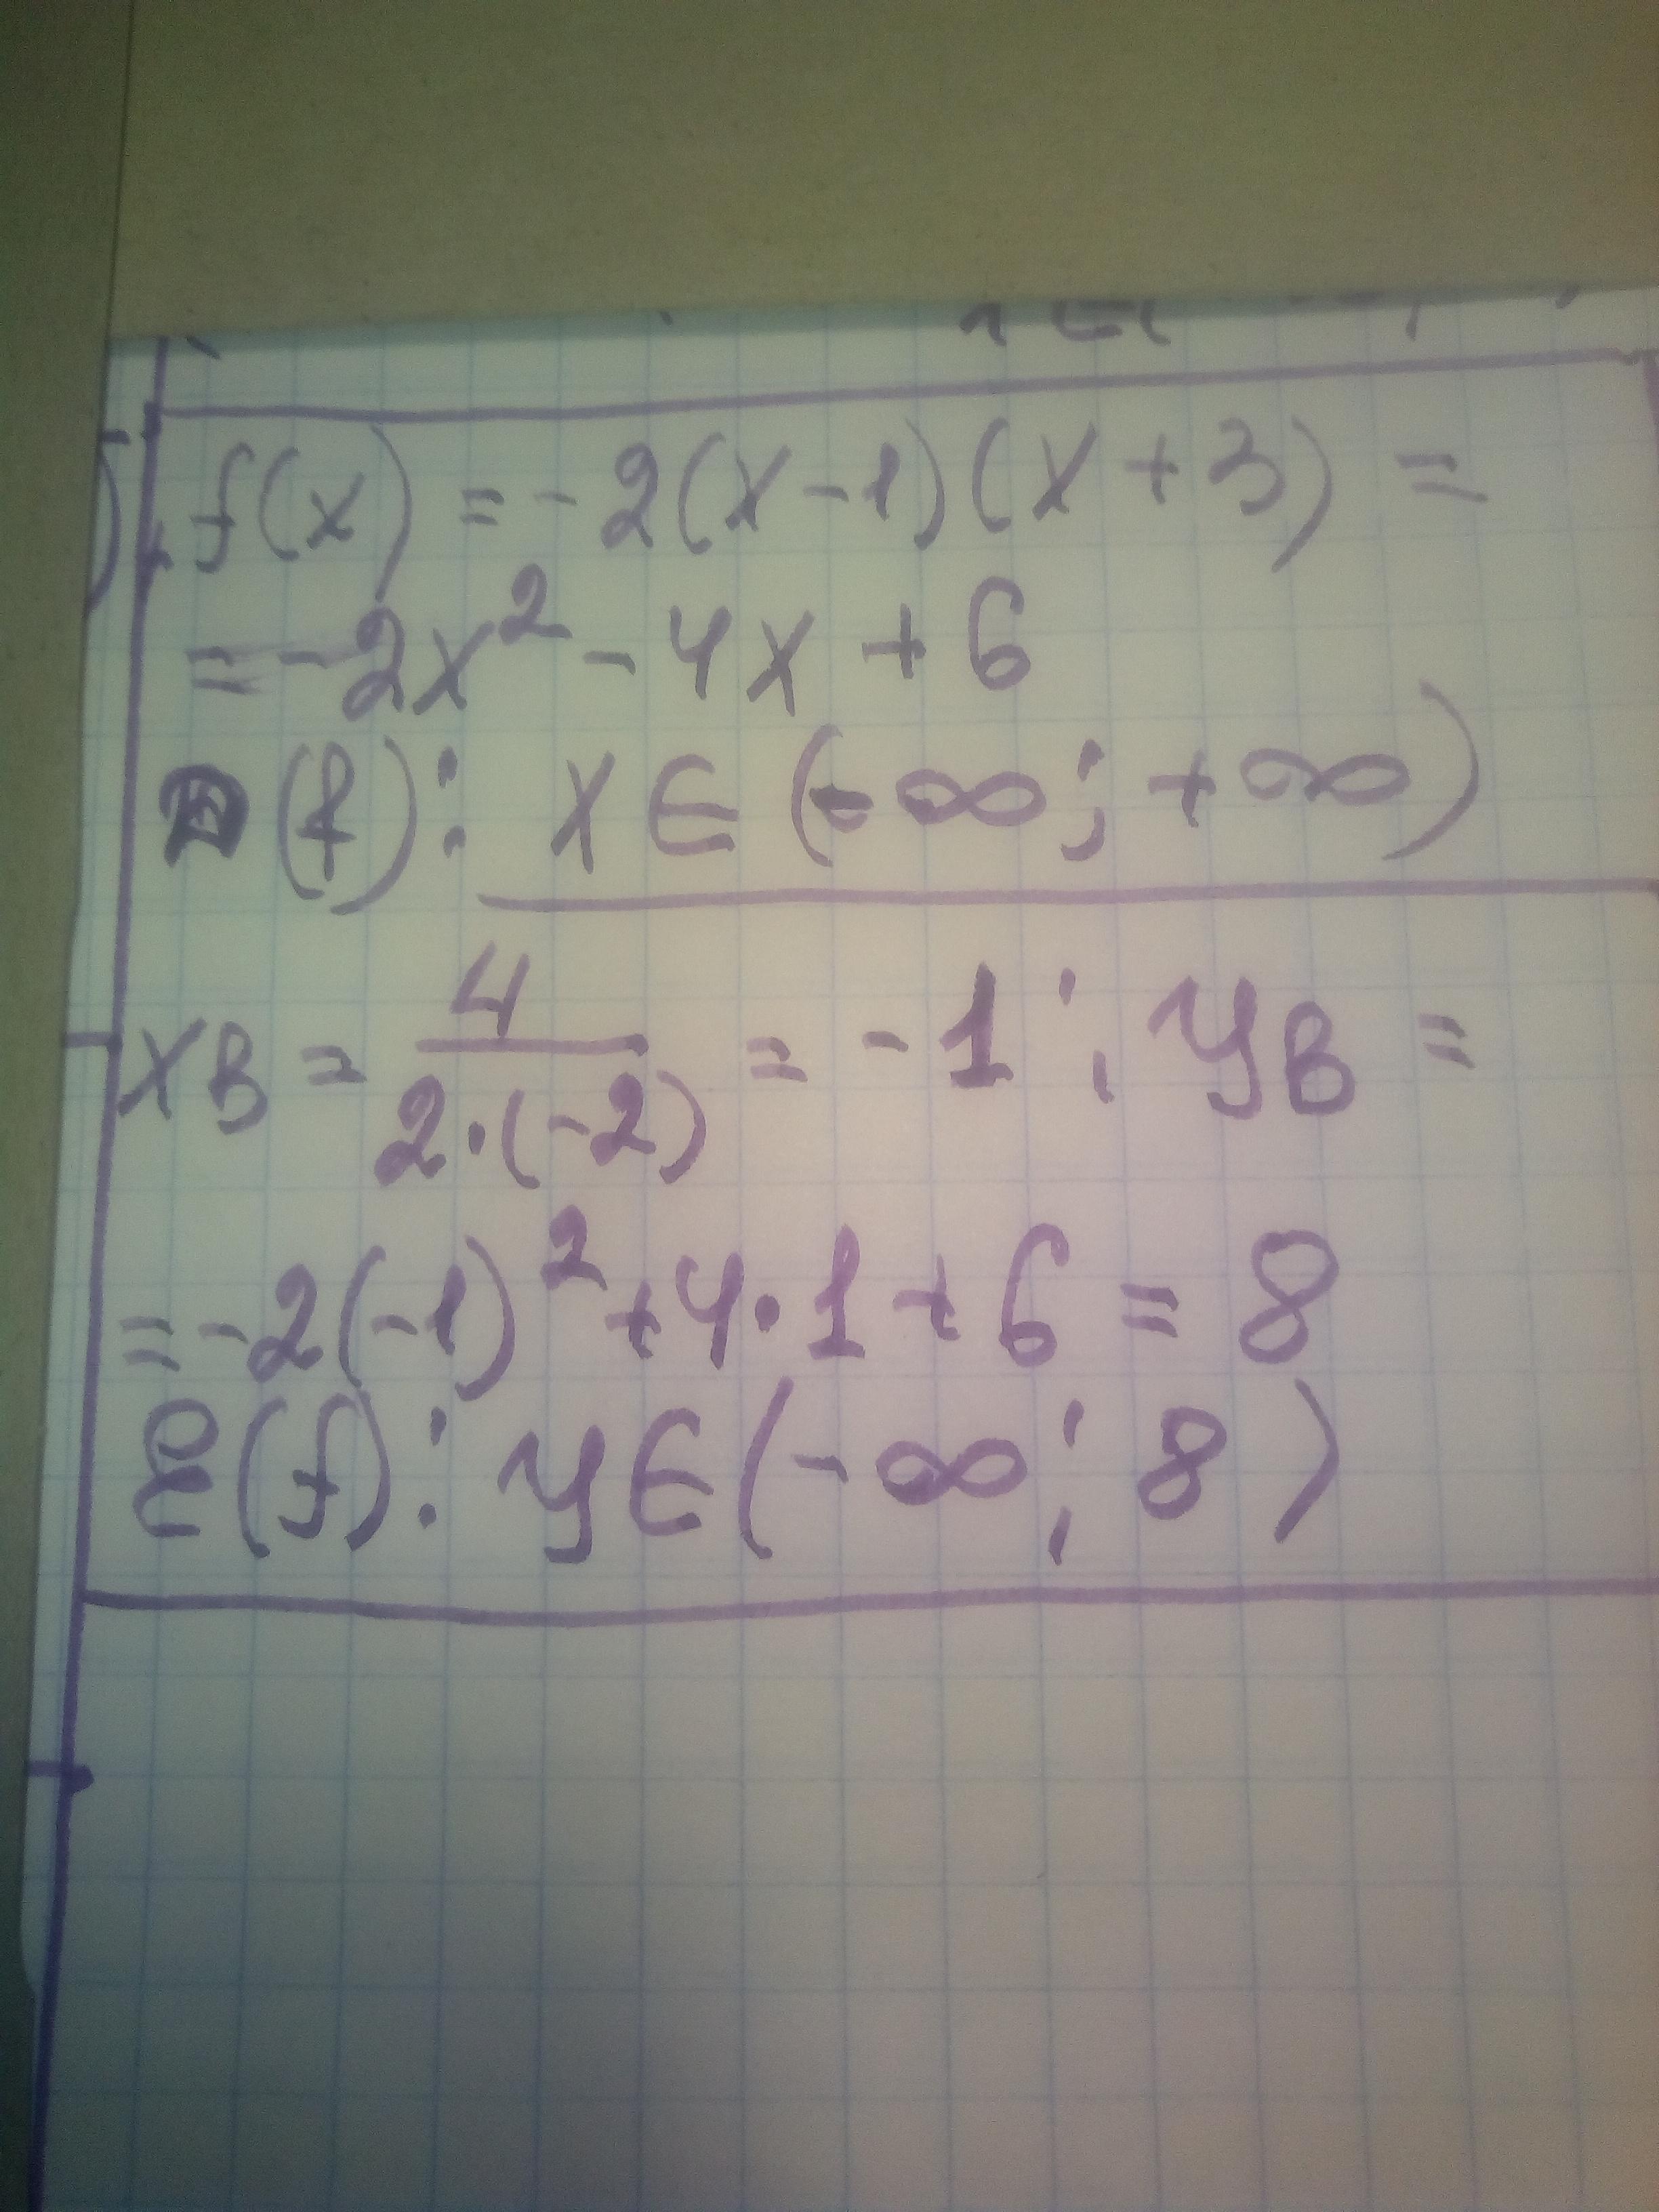 f(x) = -2(x-1)(x+3) =
= -2x² - 4x + 6
D(f): x∈(-∞; +∞)
xв = 4/(2·(-2)) = -1; yв =
= -2(-1)² + 4·1 + 6 = 8
E(f): y∈(-∞; 8)